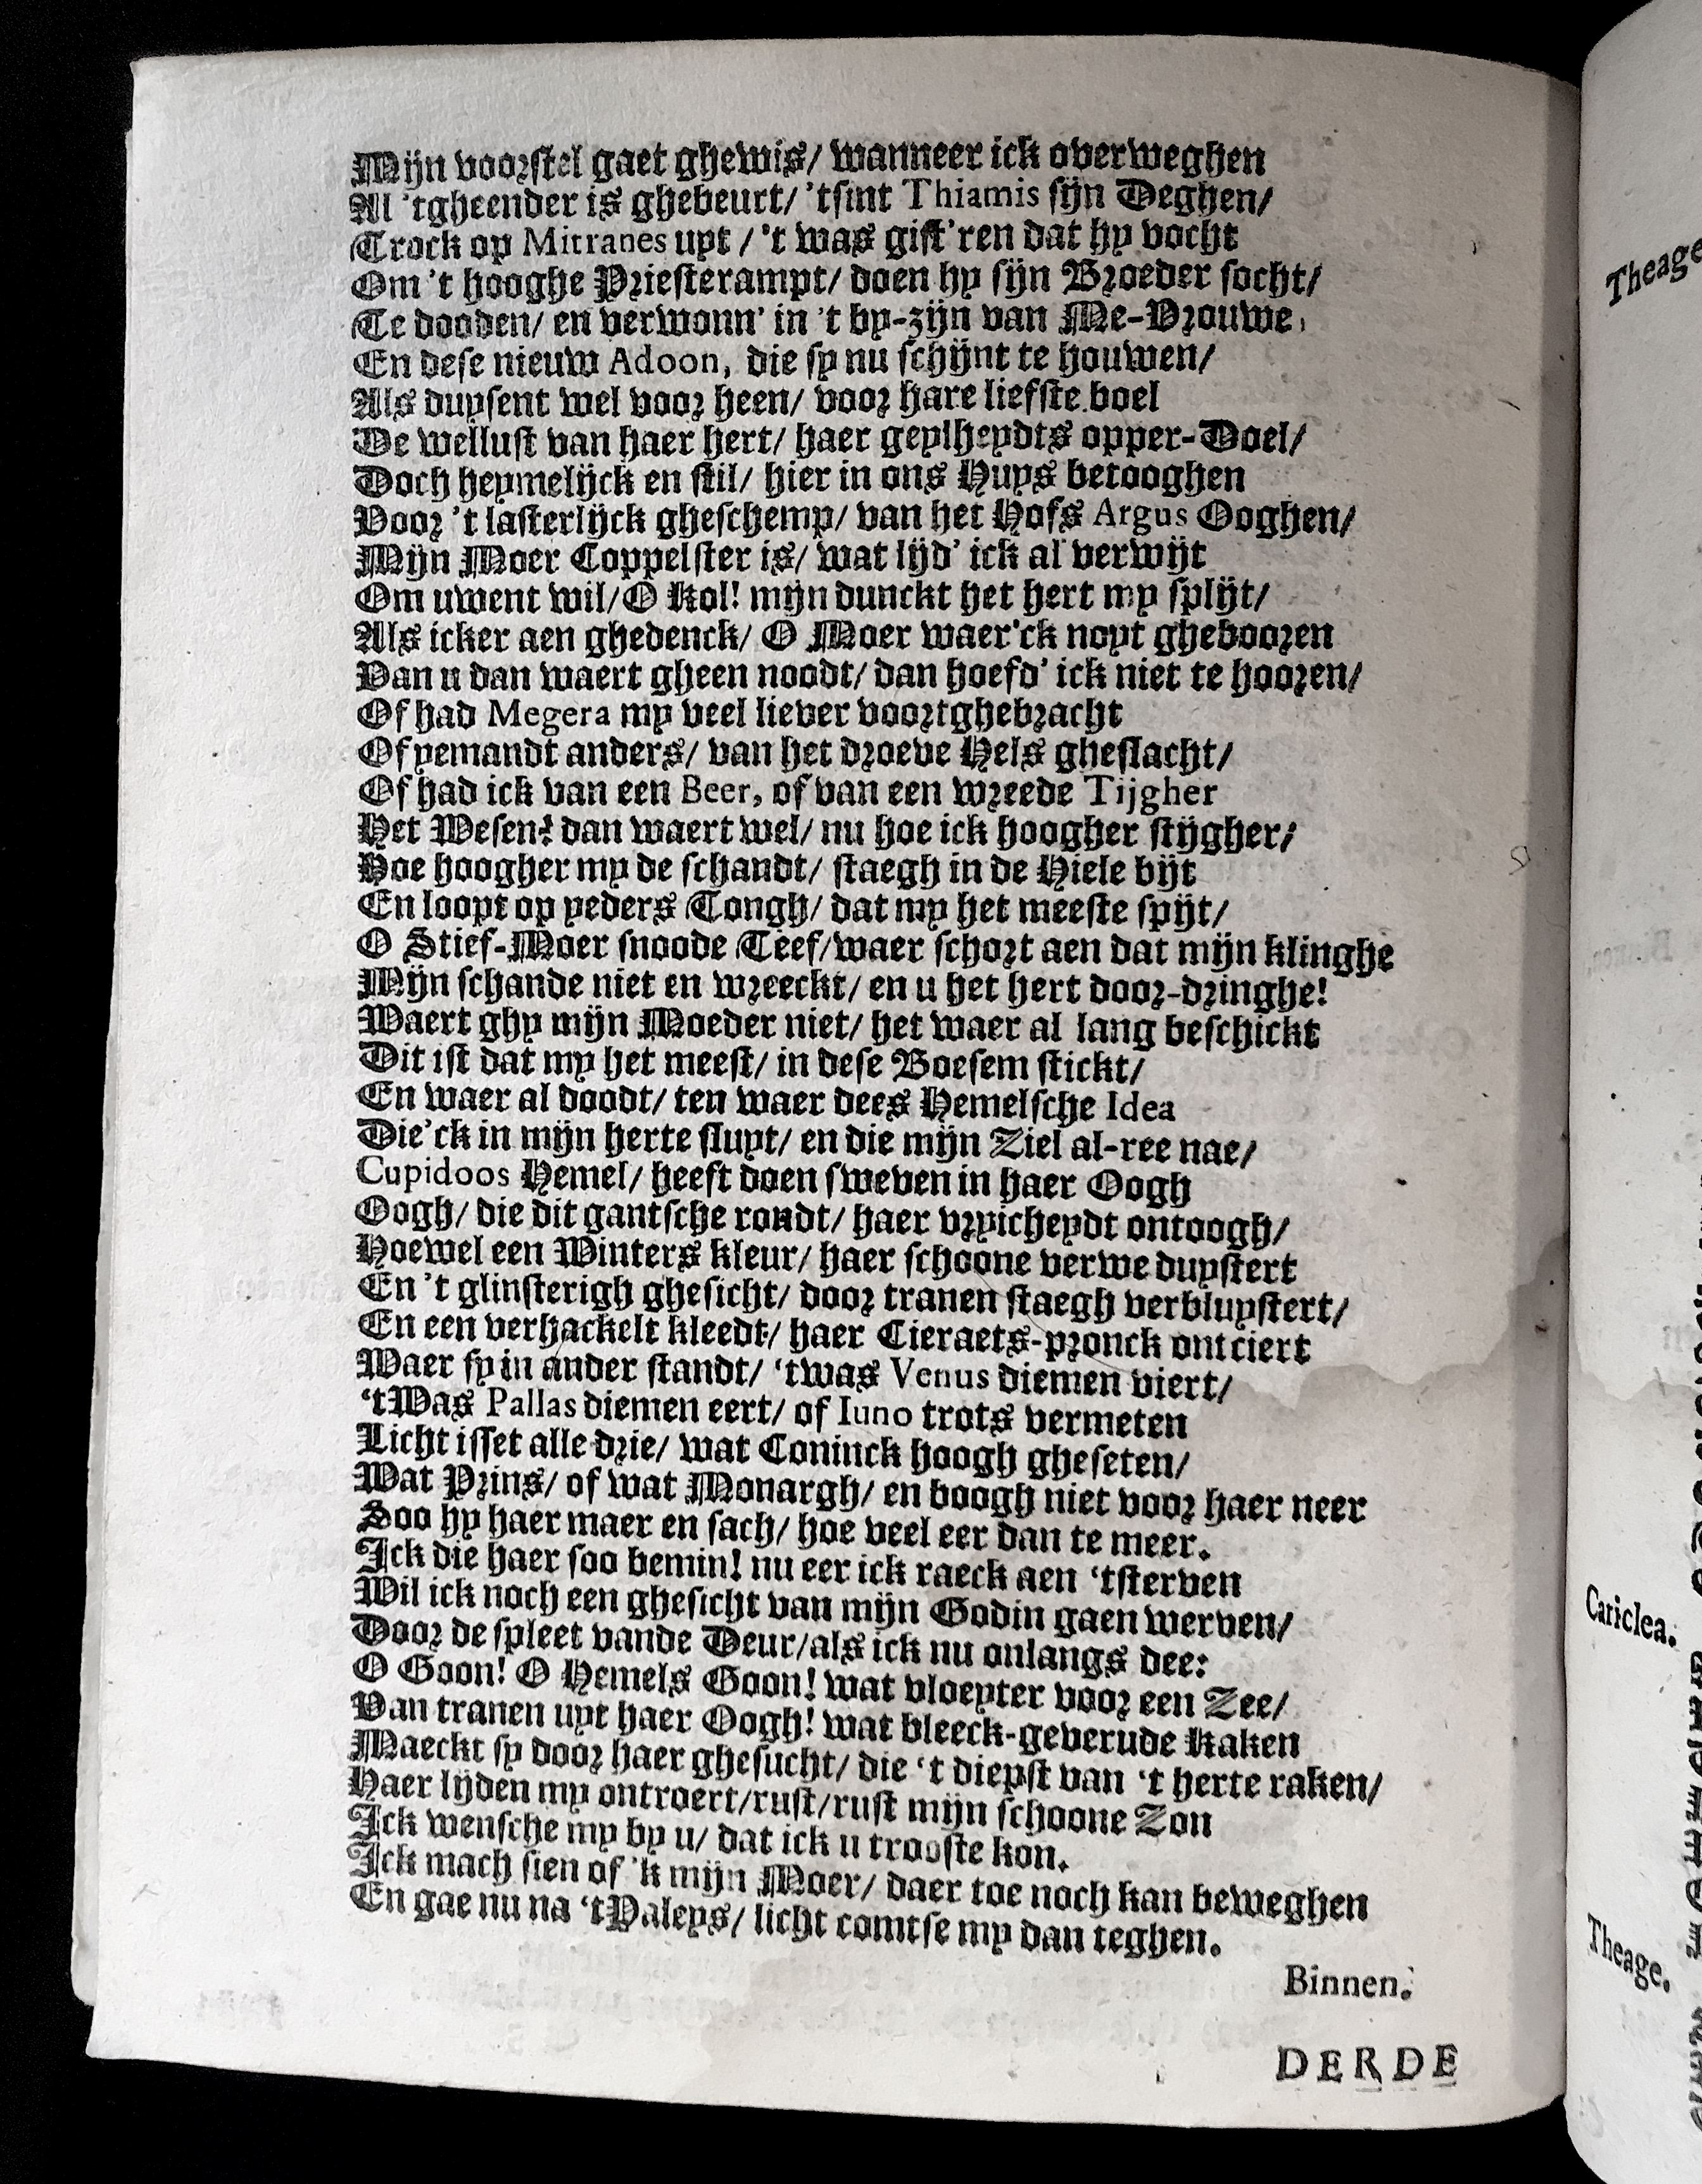 Mijn voorstel gaet ghewis/ wanneer ick overweghen
Al 'tgheender is ghebeurt/ 'tsint Thiamis sijn Deghen/
Trock op Mitranes uyt / 't was gist'ren dat hy vocht
Om 't hooghe Priesterampt/ doen hy sijn Broeder socht/
Te dooden/ en verwonn' in 't by-zijn van Me-Vrouwe,
En dese nieuw Adoon, die sy nu schijnt te houwen/
Als duysent wel voor heen/ voor hare liefste boel
De wellust van haer hert/ haer geylheydts opper-Doel/
Doch heymelijck en stil/ hier in ons Huys betooghen
Voor 't lasterlijck gheschemp/ van het Hofs Argus Ooghen/
Mijn Moer Coppelster is/ wat lijd' ick al verwijt
Om uwent wil/ O Kol! mijn dunckt het hert my splijt/
Als icker aen ghedenck/ O Moer waer'ck noyt ghebooren
Van u dan waert gheen noodt/ dan hoefd' ick niet te hooren/
Of had Megera my veel liever voortghebracht
Of yemandt anders/ van het droeve Hels gheslacht/
Of had ick van een Beer, of van een wreede Tijgher
Het Wesen! dan waert wel/ nu hoe ick hoogher stijgher/
Hoe hoogher my de schandt/ staegh in de Hiele bijt
En loopt op yeders Tongh/ dat my het meeste spijt/
O Stief-Moer snoode Teef/ waer schort aen dat mijn klinghe
Mijn schande niet en wreeckt/ en u het hert door-dringhe!
Waert ghy mijn Moeder niet/ het waer al lang beschickt
Dit ist dat my het meest/ in dese Boesem stickt/
En waer al doodt/ ten waer dees Hemelsche Idea
Die'ck in mijn herte sluyt/ en die mijn Ziel al-ree nae/
Cupidoos Hemel/ heeft doen sweven in haer Oogh
Oogh/ die dit gantsche rondt/ haer vryicheydt ontoogh/
Hoewel een Winters kleur/ haer schoone verwe duystert
En 't glinsterigh ghesicht/ door tranen staegh verbluystert/
En een verhackelt kleedt/ haer Cieraets-pronck ontciert
Waer sy in ander standt/ 'twas Venus diemen viert/
'tWas Pallas diemen eert/ of Iuno trots vermeten
Licht isset alle drie/ wat Coninck hoogh gheseten/
Wat Prins/ of wat Monargh/ en boogh niet voor haer neer
Soo hy haer maer en sach/ hoe veel eer dan te meer.
Ick die haer soo bemin! nu eer ick raeck aen 'tsterven
Wil ick noch een ghesicht van mijn Godin gaen werven/
Door de spleet vande Deur/als ick nu onlangs dee:
O Goon! O Hemels Goon! wat vloeyter voor een Zee/
Van tranen uyt haer Oogh! wat bleeck-geverude Kaken
Maeckt sy door haer ghesucht/ die 't diepst van 't herte raken/
Haer lijden my ontroert/rust/rust mijn schoone Zon
Ick wensche my by u/ dat ick u trooste kon.
Ick mach sien of 'k mijn Moer/ daer toe noch kan beweghen
En gae nu na 'tPaleys/ licht comtse my dan teghen.
Binnen.
DERDE
Theage
Cariclea.
Theage.